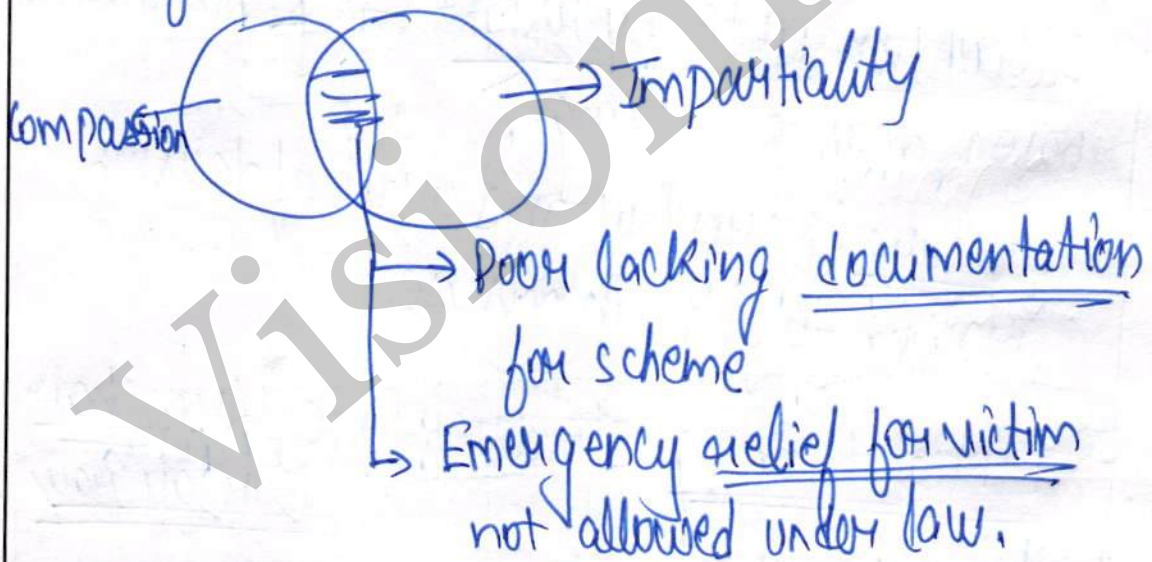 Compassion
Impartiality
Poor lacking documentation
for scheme
Emergency relief for victim
not allowed under law.
Vision